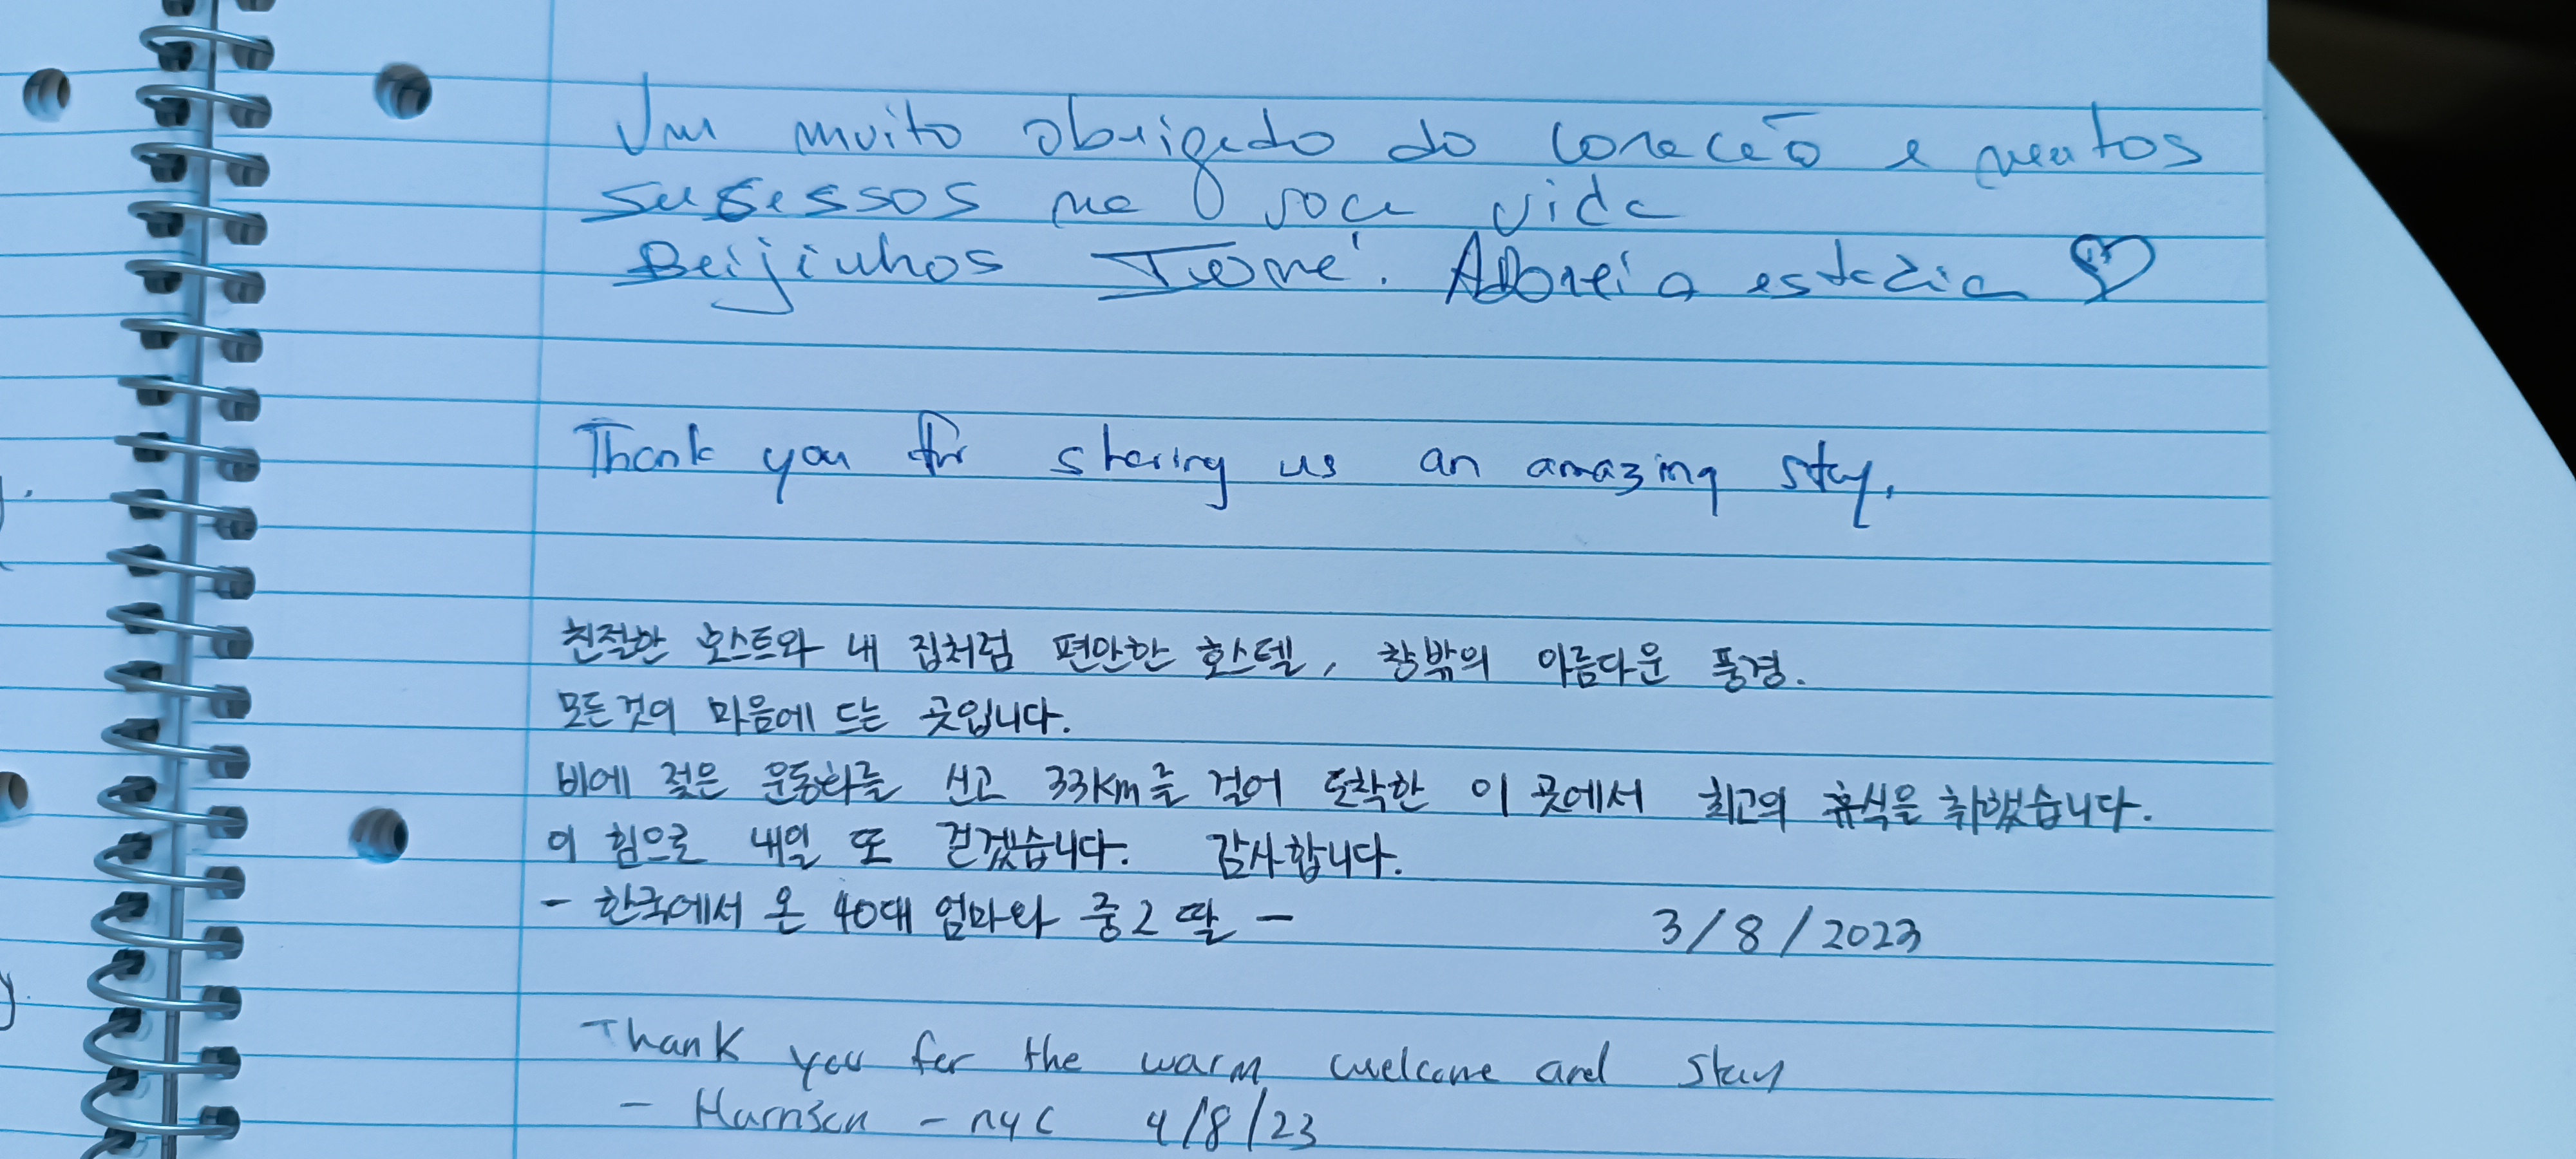 Um muito obrigado do coração e muitos
susessos na soca vida
Beijinhos Tomé. Adorei a estadia
Thank you for sharing us an amazing stay.
친절한 호스트와 내 집처럼 편안한 호스텔, 창밖의 아름다운 풍경.
모든것이 마음에 드는 곳입니다.
비에 젖은 운동화를 신고 33km를 걸어 도착한 이 곳에서 최고의 휴식을 취했습니다.
이 힘으로 내일 또 걷겠습니다. 감사합니다.
- 한국에서 온 40대 엄마와 중2 딸 - 3/8/2023
Thank you for the warm welcome and stay
- Harrison - nyc 4/8/23